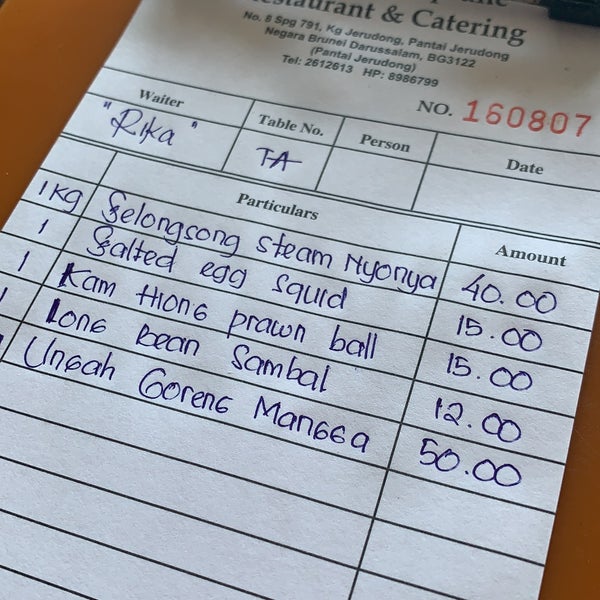 Restaurant & Catering
No. 8 Spg 791, Kg Jerudong, Pantai Jerudong
Negara Brunei Darussalam, BG3122
(Pantai Jerudong)
Tel: 2612613 HP: 8986799
NO. 160807
Waiter Table No. Person Date
"Rika" TA
Particulars Amount
1 Kg Selongsong steam Nyonya 40.00
1 Salted egg squid 15.00
1 Kam Hong prawn ball 15.00
1 Long bean Sambal 12.00
Ungah Goreng Mangga 50.00